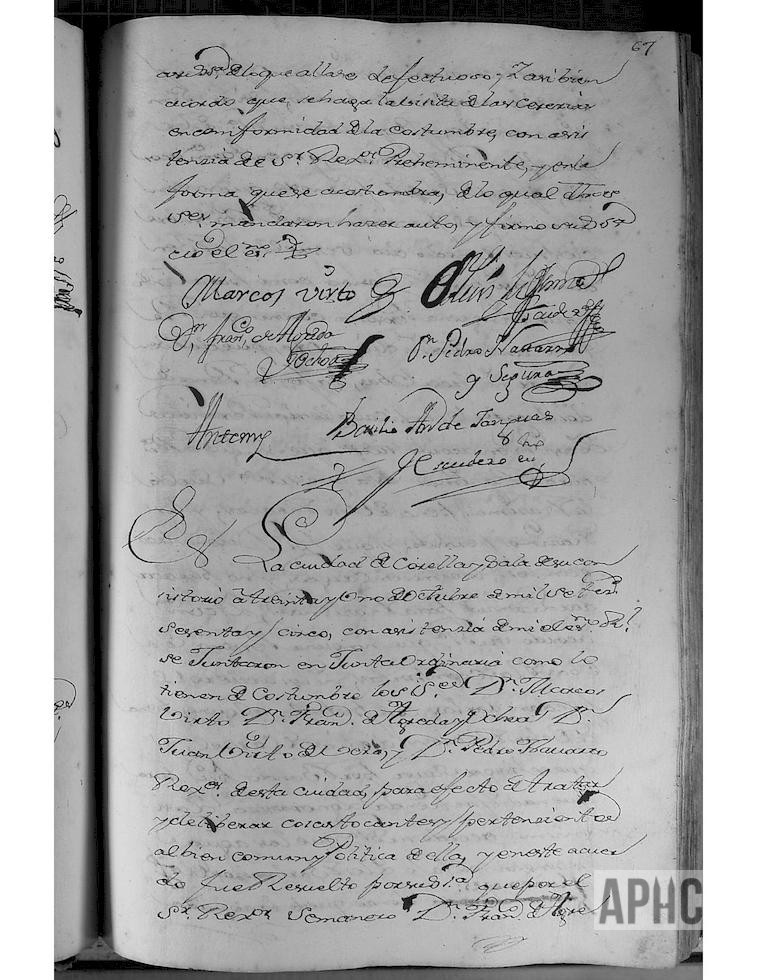 67
que allare defectuoso, Y asi bien
acordo que, se haga la visita de las cererias
en comformidad de la costumbre, con asis
tenzia de Sr. Rexor. Preheminente, y en la
forma que se acostumbra, de lo qual dhos
Ses. mandaron hazer auto, y firmo su
el esno.
Marcos virto
Dn. Franco. de Agreda
y Ochoa
Dn. Pedro Navarro
y Segura
Antemi
Basilio Ande
Escudero
En La ciudad de Corella y Sala de su con
sistorio a treinta y Uno de Octubre de mil Setezs.
sesenta y cinco, con asistenzia de mi el esno. Rl.
se Juntaron en Junta Ordinaria como lo
tienen de Costumbre los Ses. Dn. Marcos
Virto Dn. Fran. de Agreda y Ochoa Dn.
Juan Virto de Vera, y Dn. Pedro Navarro
Rexes. de esta ciudad, para efecto de tratar
y deliberar cosas tocantes y pertenecientes
al bien comun y Politica de ella, y en este acuer
do fue Resuelto por su Sa. que por el
Sr. Rexor Semanero Dn. Franco. de Agre
APHC